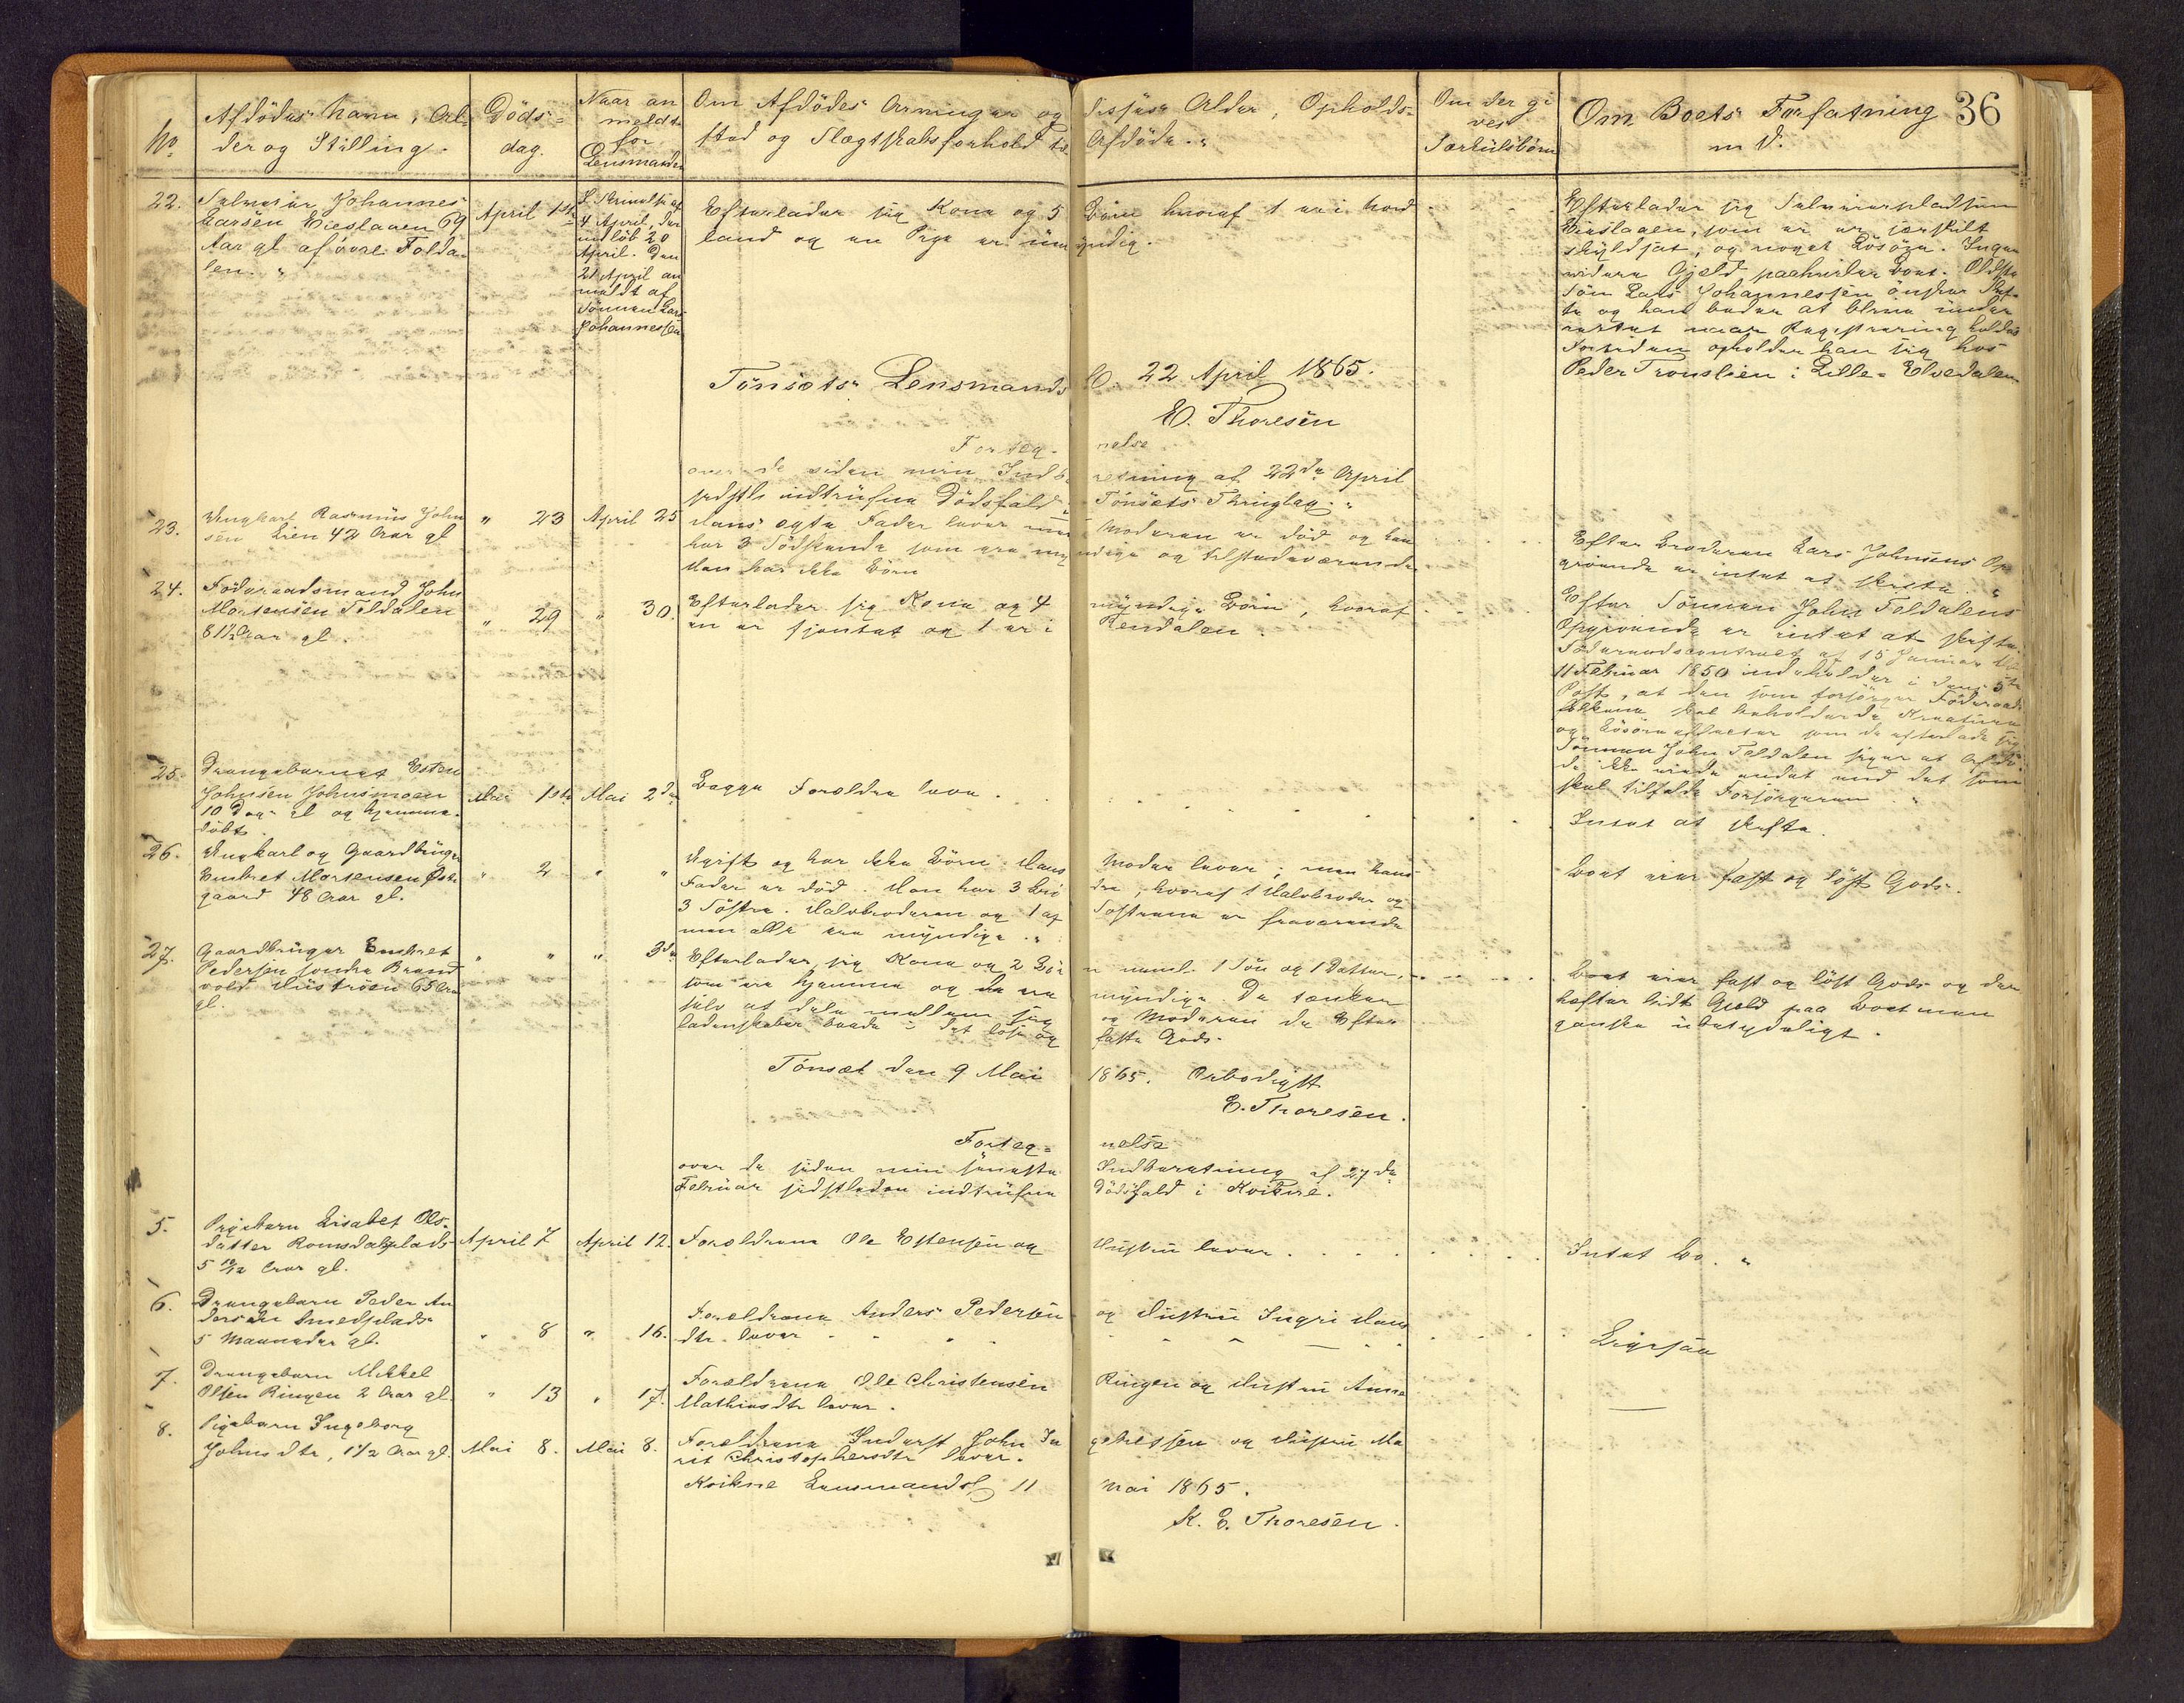 36
No
Afdødes Navn, Al-
der og Stilling.
Döds-
dag.
Naar an
meldt
for
Lensmanden
Om Afdödes Arvinger og disses Alder, Opholds-
sted og Slægtskabsforhold til Afdöde.
Om der gi
ves
Særkulsbörn
Om Boets Forfatning
m. v.
22.
Selveier Johannes
Larsen Eieslaaen 69
Aar gl af övre Folda-
len.
April 1ste
4 April, der
indlöb 20
April. Den
21 April an
meldt af
Sönnen Lars
Johannessen
Efterlader sig Kone og 5 Börn hvoraf 1 er i Nord
land og en Pige er umyndig.
Efterlader sig Selveierpladsen
Eieslaaen, som er særskilt
skyldsat, og noget Lösöre. Ingen
videre Gjæld paahviler Boet. Ældste
Sön Lars Johannessen önsker Skif-
te og han beder at blive under
rettet naar Registrering holdes
Forresten opholder han sig hos
Peder Tronslien i Lille-Elvedalen
Tönsets Lensmands 22 April 1865.
E. Thoresen
Forteg- nelse
over de siden min Indberetning af 22de April
sidstl. indtrufne Dödsfald i Tönsets Thinglag.
23.
Ungkarl Rasmus John
sen Lien 42 Aar gl
" 23
April 25
Hans ægte Fader lever men Moderen er död og han
har 3 Södskende som ere myndige og tilstedeværende
Han har ikke Börn
Efter Broderen Lars Johnsens Op
givende er intet at skifte.
24.
Föderaadsmand John
Mortensen Feldalen
81½ Aar gl.
" 29
" 30.
Efterlader sig Kone og 4 myndige Börn, hvoraf
en er sjontet og 1 er i Rendalen.
Efter Sönnen John Feldalens
Opgivende er intet at skifte.
Föderaadscontract af 15 Januar
11 Februar 1850 indeholder i dens 5te
Post, at den som forsörger Föderaads
folkene skal beholde de Kreaturer
og Lösöreeffecter som de efterlade sig
Sönnen John Feldalen siger at Afdö-
de ikke eiede andet end det som
skal tilfalde Forsörgeren.
25.
Drengebarnet Esten
Johnsen Johnsmoen
10 Dage gl og hjemme-
döbt.
Mai 1ste
Mai 2den
Begge Forældre leve.
Intet at skifte.
26.
Ungkarl og Gaardbruger
Embret Mortensen Øst-
gaard 48 Aar gl.
" 2
" "
Ugift og har ikke Börn. Hans Moder lever; men hans
Fader er död. Han har 3 Brö dre, hvoraf 1 Halvbroder og
3 Söstre. Halvbroderen og 1 af Söstrene er fraværende
men alle ere myndige.
Boet eier fast og löst Gods.
27.
Gaardbruger Embret
Pedersen söndre Brænd
vold Uustrøen 65 Aar
gl.
" "
" 3de
Efterlader sig Kone og 2 Bör n nemlig 1 Sön og 1 Datter,
som ere hjemme og de ere myndige. De tænker
selv at dele mellem sig og Moderen de Efter
ladenskaber baade i det löse og faste Gods.
Boet eier fast og löst Gods og der
hefter lidt Gjæld paa Boet men
ganske ubetydeligt.
Tönset den 9 Mai 1865. Ærbödigst
E. Thoresen.
Forteg- nelse
over de siden min seneste Indberetning af 27de
Februar sidstleden indtrufne Dödsfald i Kvikne.
5.
Pigebarn Lisabet Ols-
datter Romsdalsplads
5 10/12 Aar gl.
April 7
April 12.
Forældrene Ole Estensen og Hustru lever.
Intet Bo.
6.
Drengebarn Peder An
dersen Smedplads
5 Maaneder gl.
" 8
" 16.
Forældrene Anders Pedersen og Hustru Ingri Hans
dtr. lever
Ligesaa
7.
Drengebarn Mikkel
Olsen Ringen 2 Aar gl.
" 13
" 17.
Forældrene Ole Christensen Ringen og Hustru Anne
Mathiasdtr lever.
8.
Pigebarn Ingeborg
Johnsdtr, 1½ Aar gl.
Mai 8.
Mai 8.
Forældrene Inderst John In gebretsen og Hustru Ma
rit Christophersdtr lever.
Kvikne Lensmands 11 Mai 1865.
K. E. Thoresen.